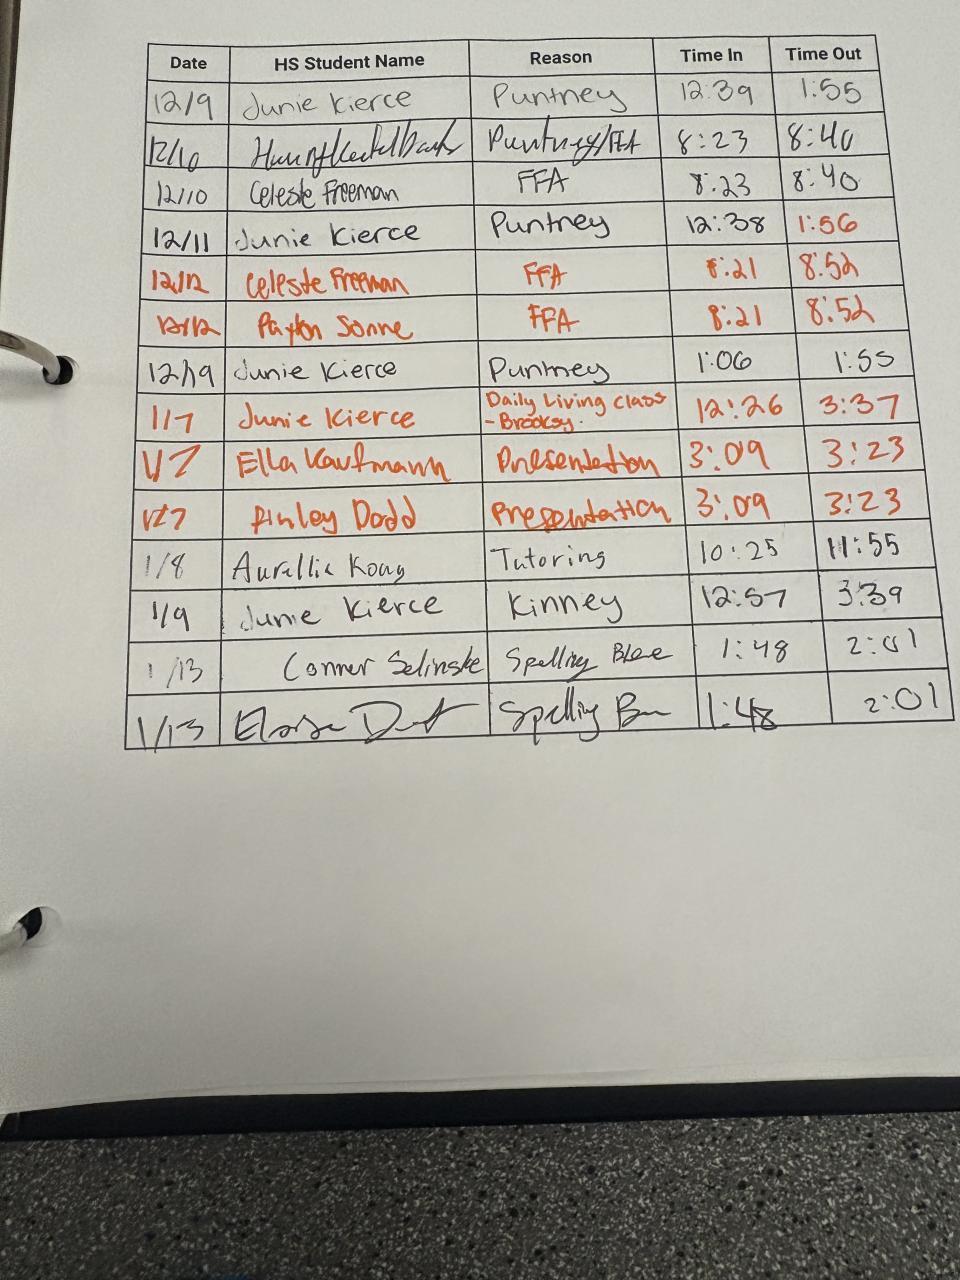 Date HS Student Name Reason Time In Time Out
12/9 Junie Kierce Puntney 12:39 1:55
12/10 Puntney/FFA 8:23 8:40
12/10 Celeste Freeman FFA 8:23 8:40
12/11 Junie Kierce Puntney 12:38 1:56
12/12 Celeste Freeman FFA 8:21 8:52
12/12 Payton Sonne FFA 8:21 8:52
12/19 Junie Kierce Puntney 1:06 1:55
1/7 Junie Kierce Daily Living Class 12:26 3:37
- Brooksy.
1/7 Ella Kaufmann Presentation 3:09 3:23
1/7 Finley Dodd Presentation 3:09 3:23
1/8 Aurellia Kong Tutoring 10:25 11:55
1/9 Junie Kierce Kinney 12:57 3:39
1/13 Conner Selinske Spelling Beee 1:48 2:01
1/13 Spelling Bee 1:48 2:01